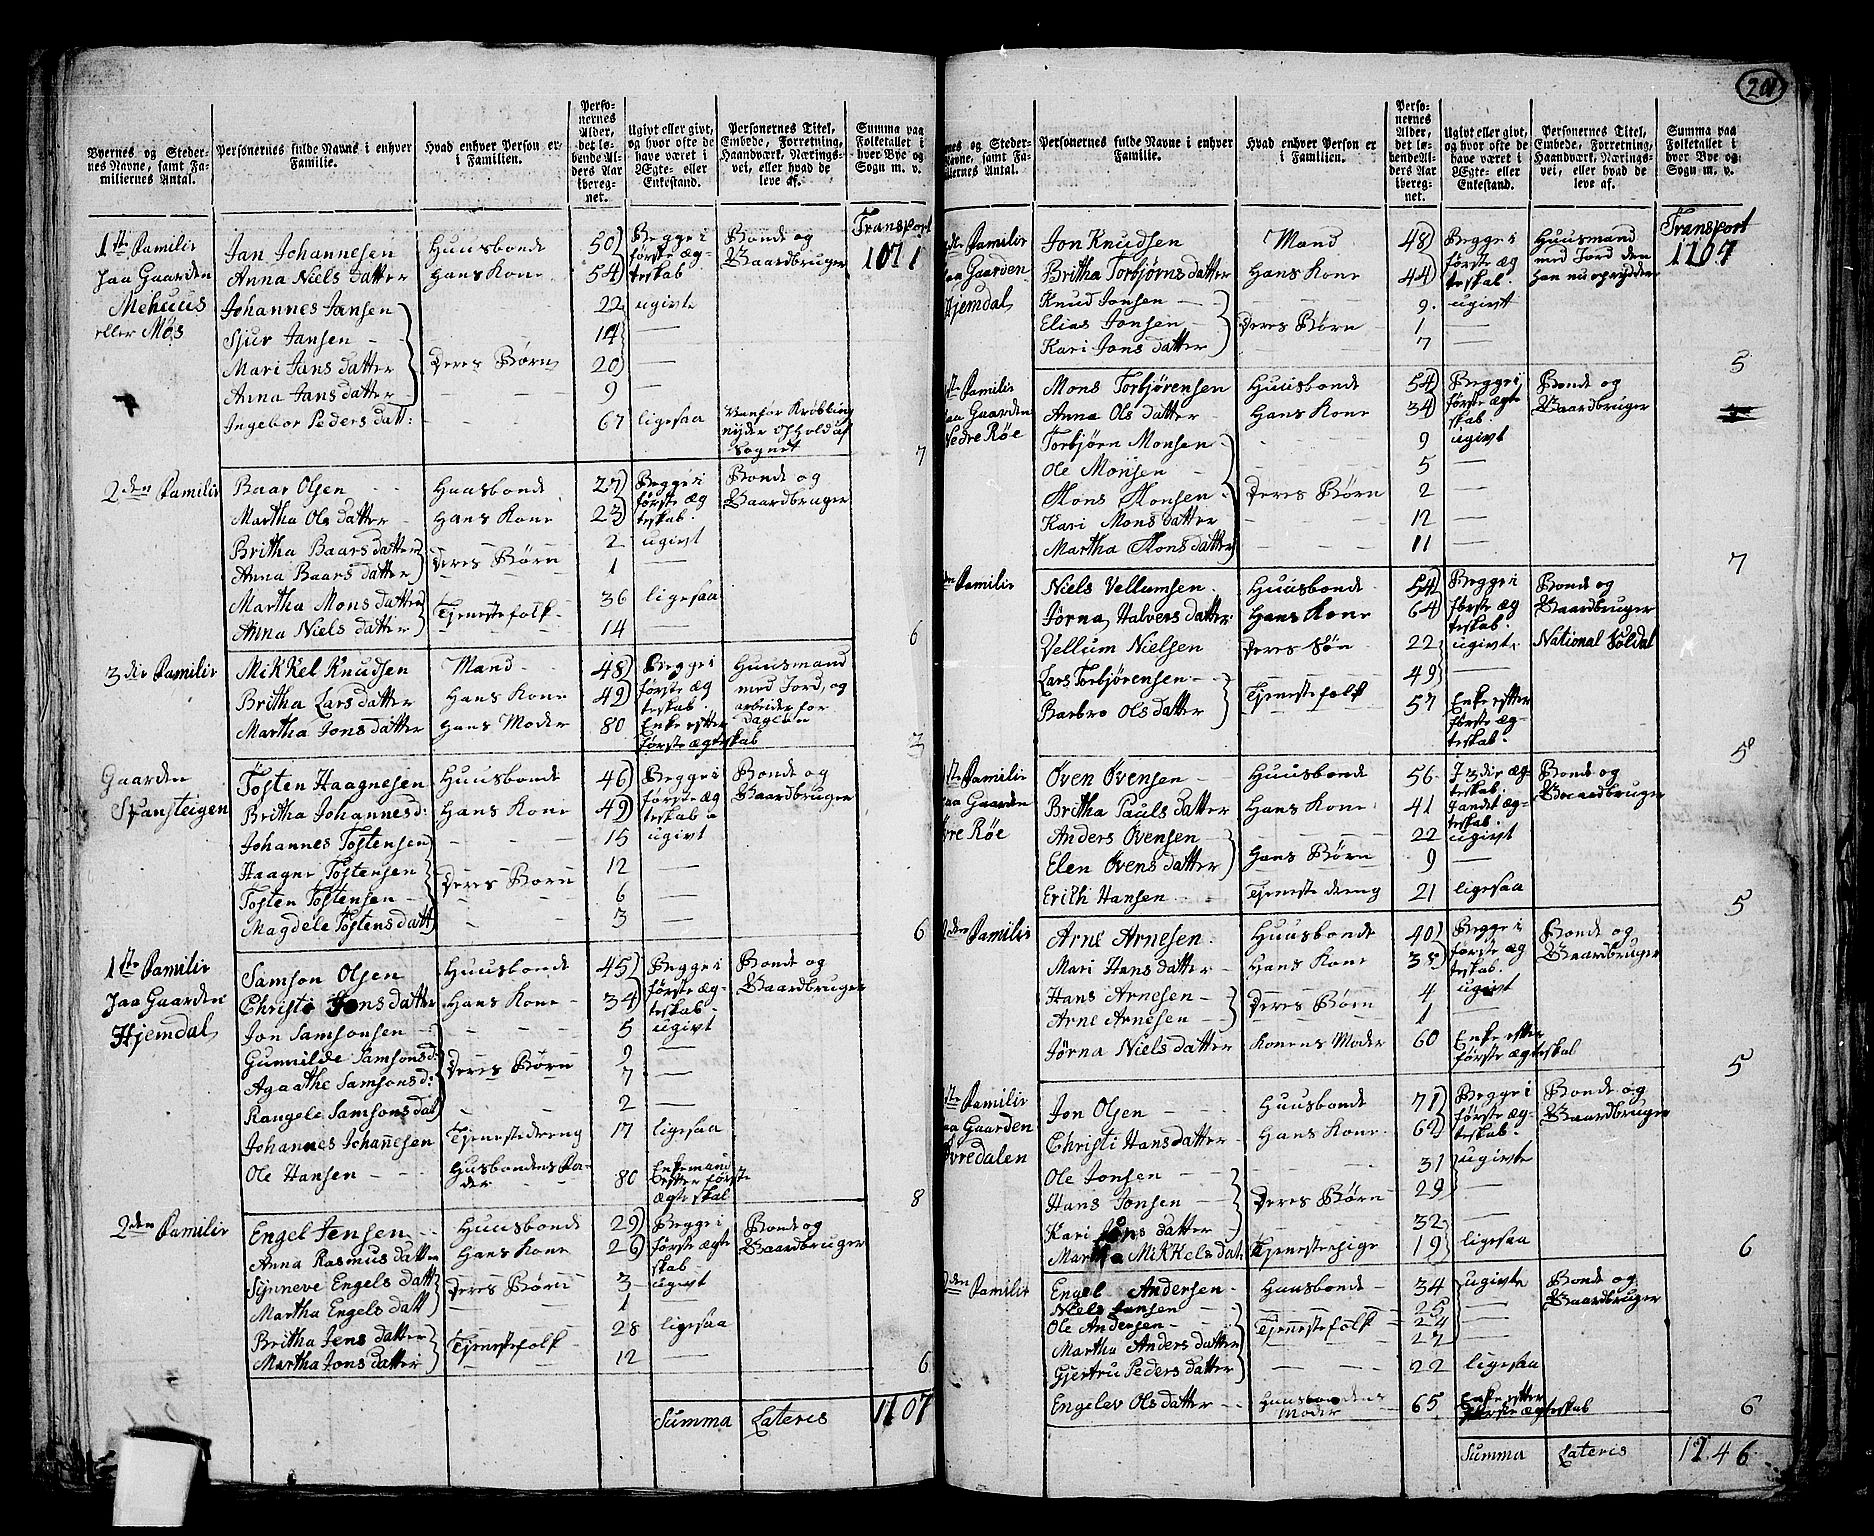 Byernes og Stedernes Navne, samt Familiernes Antal.
Personernes fulde Navne i enhver Familie.
Hvad enhver Person er i Familien.
Personernes Alder, det løbende Alders Aar iberegnet.
Ugivt eller givt, og hvor ofte de have været i Ægte- eller Enkestand.
Personernes Titel, Embede, Forretning, Haandværk, Næringsvei, eller hvad de leve af.
Summa paa Folketallet i hver Bye og Sogn m. v.
Transport 1071
1ste Familie paa Gaarden Mehuus eller Møs
Jan Johannesen Huusbonde 50 Begge i første ægteskab Bonde og Gaardbruger
Anna Niels datter Hans Kone 54
Johannes Jansen 22 ugivte
Sjur Jansen 14 —
Mari Jans datter Deres Børn 20 —
Anna Jans datter 9 —
Ingebor Peders datt: 67 ligesaa Vanfør Krøbling nyder Ophold af Sognet
7
2den Familie Baar Olsen Huusbonde 27 Begge i første ægteskab. Bonde og Gaardbruger
Martha Ols datter Hans Kone 23
Britha Baars datter 2 ugivt
Anna Baars datter Deres Børn 1 —
Martha Mons datter 36 ligesaa
Anna Niels datter Tjenestefolk 14 —
6
3die Familie Mikkel Knudsen Mand 48 Begge i første ægteskab. Huusmand med Jord, og arbeider for daglen
Britha Lars datter Hans Kone 49
Martha Jons datter Hans Moder 80 Enke efter første ægteskab
3
Gaarden Spansteigen
Tosten Haagnesen Huusbonde 46 Begge i første ægteskab Bonde og Gaardbruger
Britha Johannesd: Hans Kone 49
Johannes Tostensen 15 ugivt
Haagne Tostensen 12 —
Tosten Tostensen Deres Børn 6 —
Magdele Tostens datt 3 —
6
1ste Familie paa Gaarden Hjemdal
Samson Olsen Huusbonde 45 Begge i første ægteskab Bonde og Gaardbruger
Christi Jons datter Hans Kone 34
Jon Samsonsen 5 ugivt
Gunnilde Samsonsd: 9 —
Agaathe Samsonsd: Deres Børn 7 —
Rangele Samsons dat 2 —
Johannes Johannesen Tjenestedreng 17 ligesaa
Ole Hansen Husbondens Fader 80 Enkemand efter første ægteskab
8
2den Familie Engel Jensen Huusbonde 29 Begge i første ægteskab Bonde og Gaardbruger
Anna Rasmus datter Hans Kone 26
Synneve Engels datt 3 ugivt
Martha Engels datt Deres Børn 1 —
Britha Jens datter 28 ligesaa
Martha Jons datter Tjenestefolk 12 —
6
Summa Lateris 1107
201
nes og Stedernes Navne, samt Familiernes Antal.
Personernes fulde Navne i enhver Familie.
Hvad enhver Person er i Familien.
Personernes Alder, det løbende Alders Aar iberegnet.
Ugivt eller givt, og hvor ofte de have været i Ægte- eller Enkestand.
Personernes Titel, Embede, Forretning, Haandværk, Næringsvei, eller hvad de leve af.
Summa paa Folketallet i hver Bye og Sogn m. v.
Transport 1107
den Familie paa Gaarden Hjemdal
Jon Knudsen Mand 48 Begge i første ægteskab. Huusmand med Jord den han nu oprydder
Britha Torbjørns datter Hans Kone 44
Knud Jonsen 9 ugivt
Elias Jonsen Deres Børn 1 —
Kari Jons datter 7 —
5
ste Familie paa Gaarden Nedre Røe
Mons Torbjørensen Huusbonde 54 Begge i første ægteskab Bonde og Gaardbruger
Anna Ols datter Hans Kone 34
Torbjørn Monsen 9 ugivt
Ole Monsen 5 —
Mons Monsen Deres Børn 2 —
Kari Mons datter 12 —
Martha Mons datter 11 —
7
den Familie Niels Vellumsen Huusbonde 54 Begge i første ægteskab. Bonde og Gaardbruger
Jørna Halvers datter Hans Kone 64
Vellum Nielsen Deres Søn 22 ugivte National Soldat
Lars Torbjørensen 49 —
Barbro Ols datter Tjenestefolk 57 Enke efter første ægteskab.
5
ste Familie paa Gaarden Øvre Røe
Øven Øvensen Huusbonde 56 I 3die ægteskab. Bonde og Gaardbruger
Britha Pauls datter Hans Kone 41 I andet ægteskab.
Anders Øvensen 22 ugivt
Elen Øvens datter Hans Børn 9 —
Erich Hansen Tjeneste dreng 21 ligesaa
5
2den Familie Arne Arnesen Huusbonde 40 Begge i første ægteskab. Bonde og Gaardbruger
Mari Hans datter Hans Kone 38
Hans Arnesen 4 ugivt
Arne Arnesen Deres Børn 1 —
Jørna Niels datter Konens Moder 60 Enke efter første ægteskab
5
ste Familie paa Gaarden Øvredalen
Jon Olsen Huusbonde 71 Begge i første ægteskab. Bonde og Gaardbruger
Christi Hans datter Hans Kone 62
Ole Jonsen 31 ugivte
Hans Jonsen Deres Børn 29 —
Kari Jons datter 32 —
Martha Mikkels dat. Tjenestepige 19 ligesaa
6
2den Familie Engel Andersen Huusbonde 34 ugivte Bonde og Gaardbruger
Niels Jansen 25 —
Ole Andersen Tjenestefolk 24 —
Martha Anders datter 27 —
Gjertru Peders datter 22 ligesaa
Engelev Ols datter Huusbondens Moder 65 Enke efter første ægteskab
6
Summa Lateris 1146